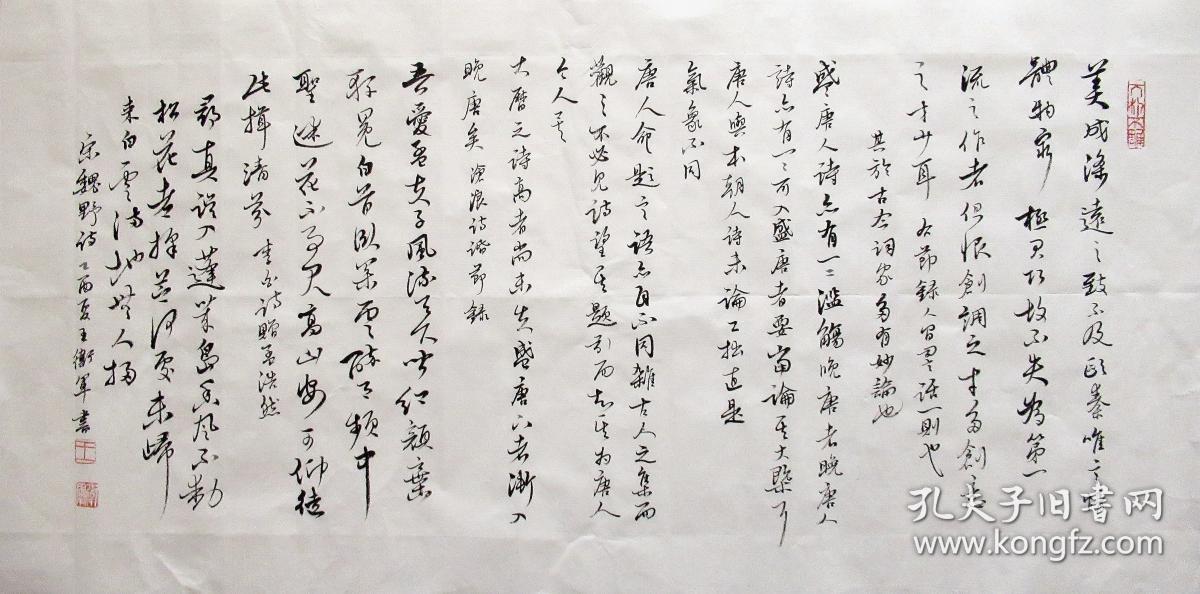 美成深遠之致不及歐秦唯言情
體物窮極工巧故不失為第一
流之作者但恨創調之才多創意
之才少耳 右節錄人間詞話一則也
其於古今詞家多有妙論也
盛唐人詩亦有一二濫觴晚唐者晚唐人
詩亦有一二可入盛唐者要當論其大槩耳
唐人與本朝人詩未論工拙直是
氣象不同
唐人命題之語亦自不同雜古人之集而
觀之不必見詩望其題引而知其為唐人
今人矣
大曆之詩高者尚未失盛唐下者漸入
晚唐矣 滄浪詩話節錄
吾愛孟夫子風流天下聞紅顏棄
軒冕白首臥松雲醉月頻中
聖迷花不事君高山安可仰徒
此揖清芬 李白詩贈孟浩然
尋真誤入蓬萊島香風不動
松花老採芝何處未歸
來白雲滿地無人掃
宋魏野詩 乙酉夏王衛軍書
孔夫子旧书网
www.kongfz.com